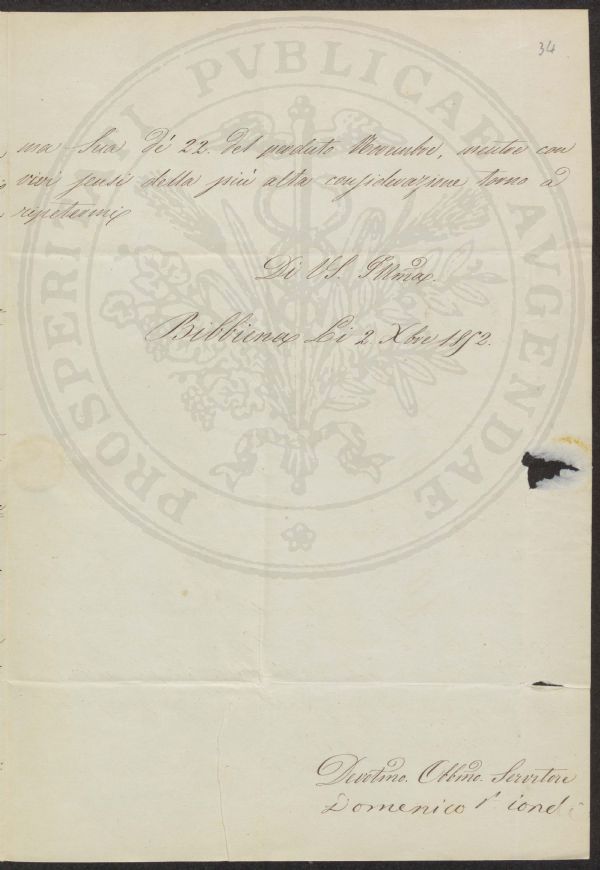 34
PROSPERITATI PVBLICAE AVGENDAE
ma Sua de' 22. del perduto Novembre, mentre con
vivi sensi della più alta considerazione torno a
ripetermi
Di VS. Illma.
Bibbiena Li 2 Xbre 1852.
Devotmo. Obbmo. Servitore
Domenico